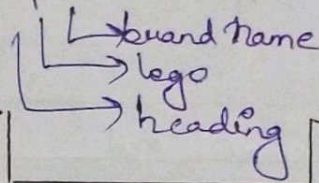 brand name
logo
heading